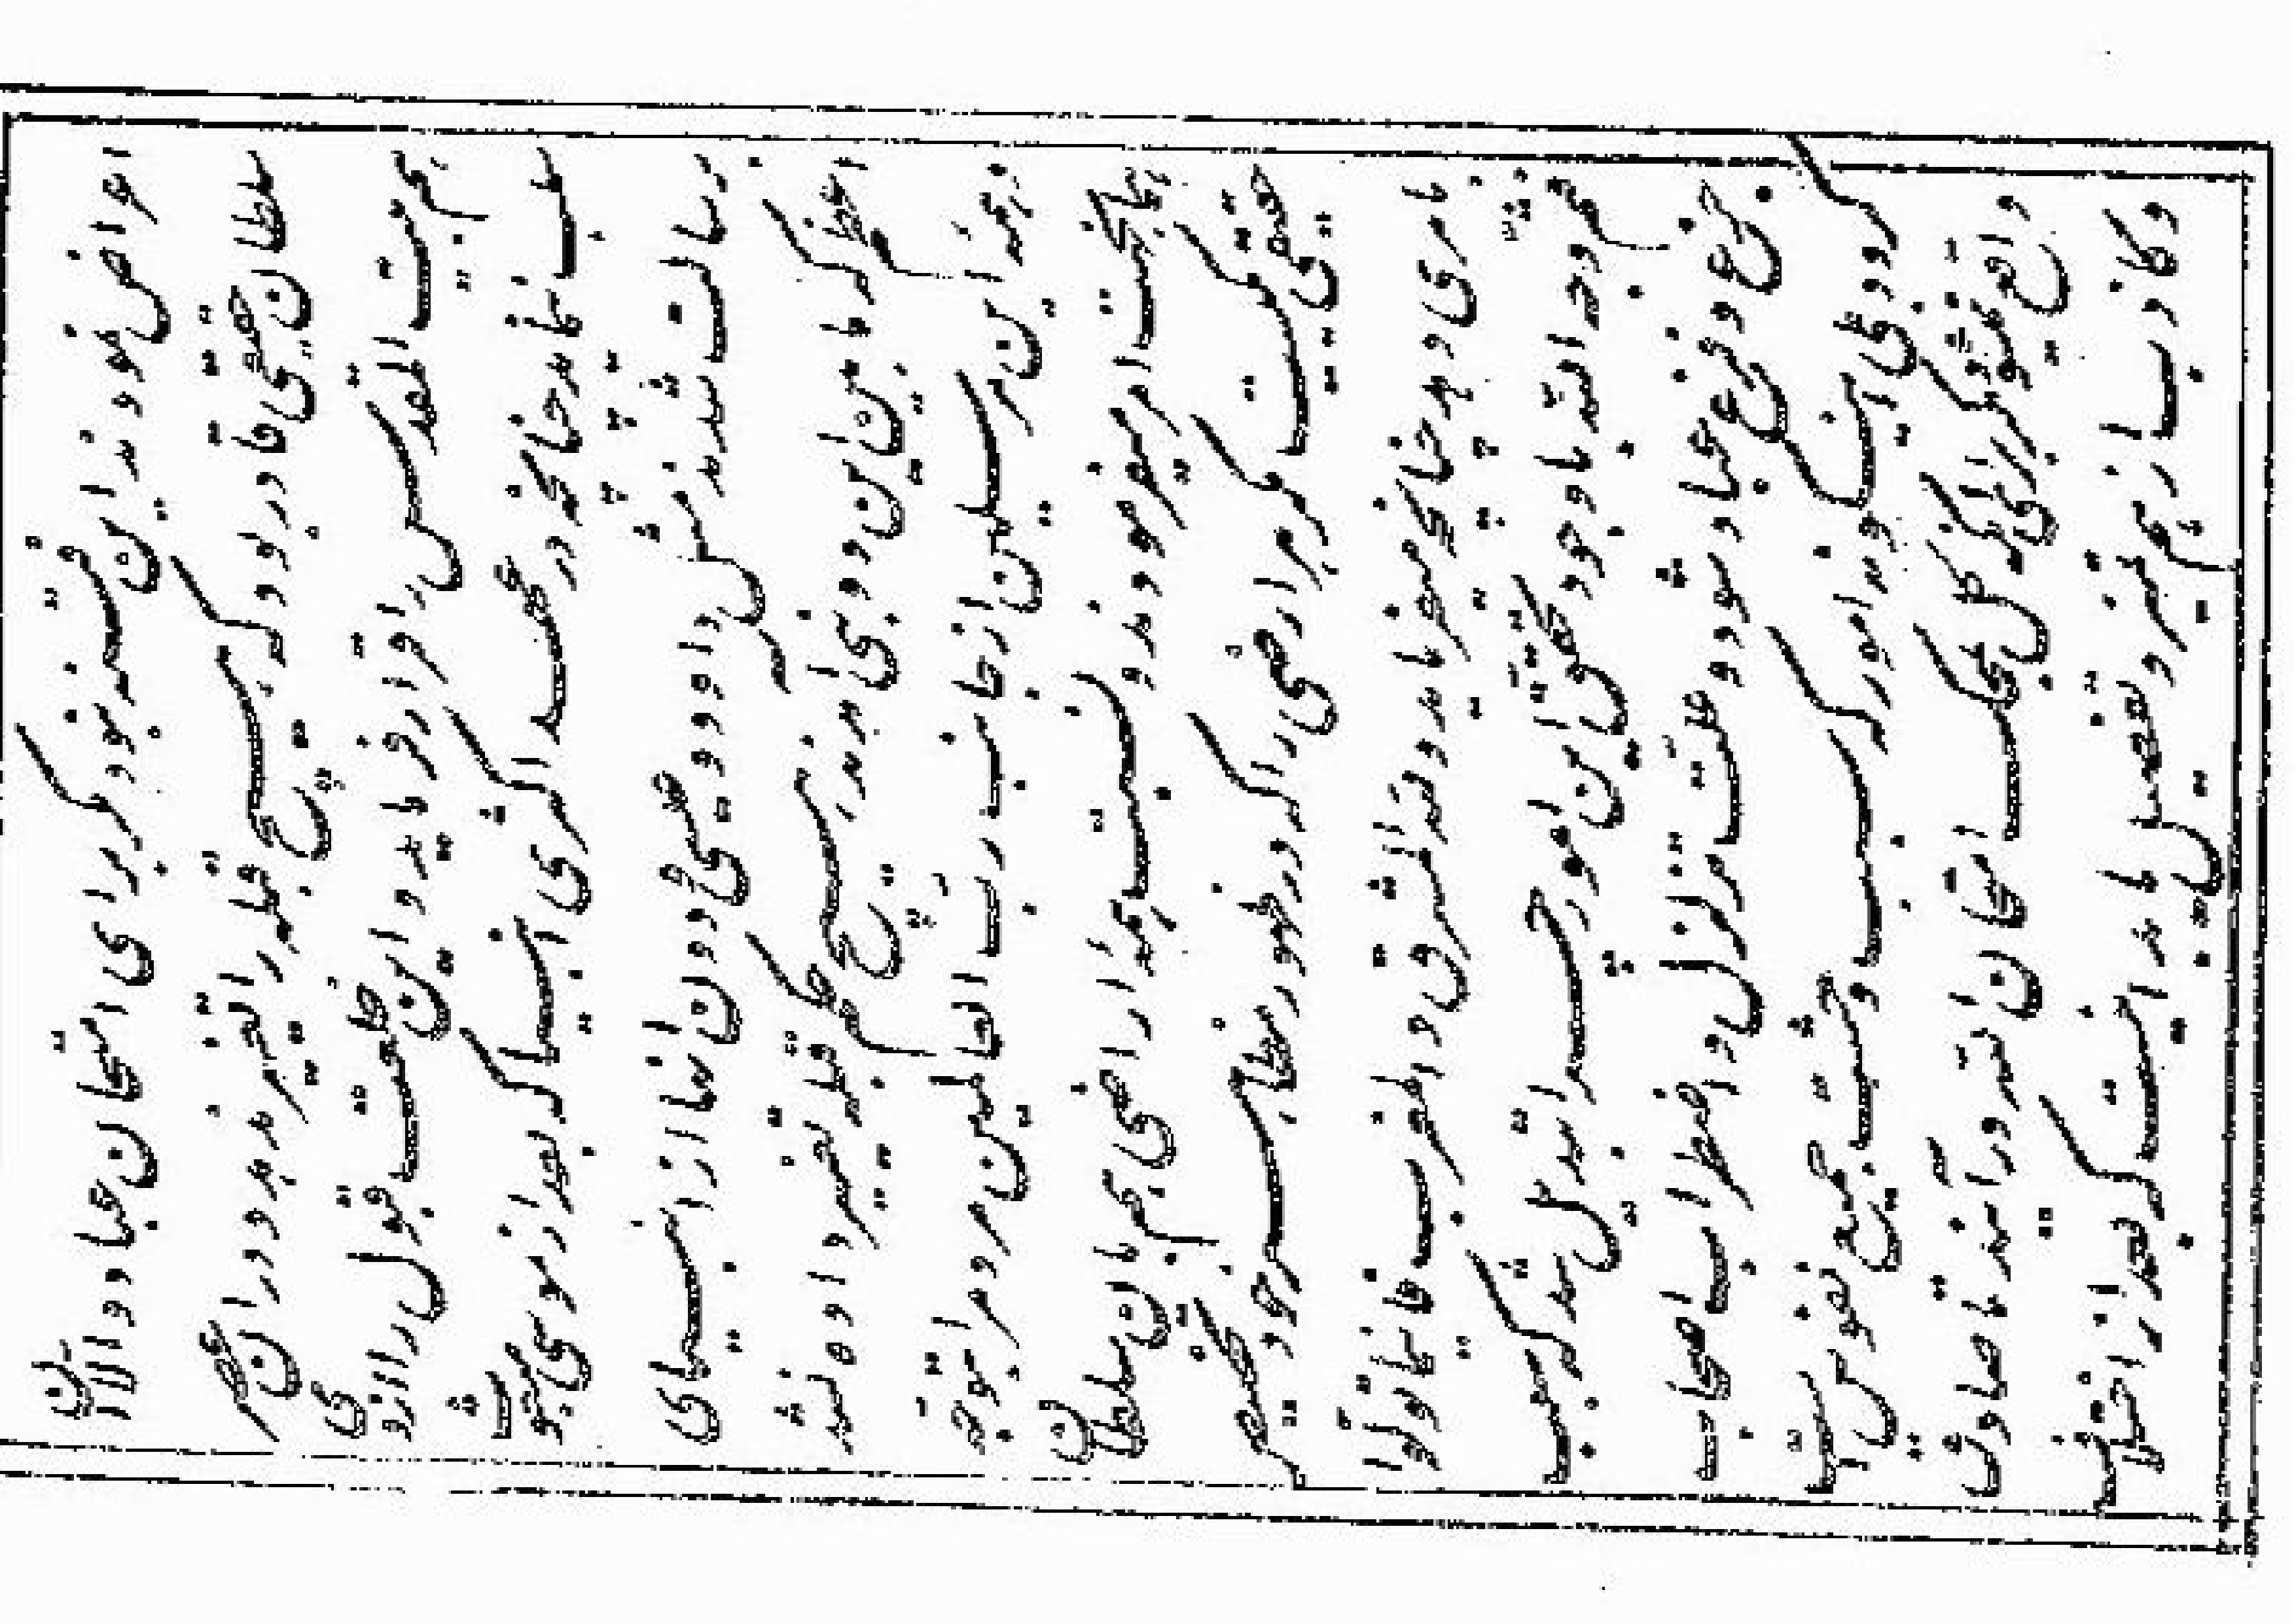 اعراض نمودند این نبود مگر برای امتحان عباد و الا آن
سلطان حقیقی قادر بود که هیچ قبله را تغییر ندهد و در آن عصر
هم بیت المقدس را قرار فرماید و این خلعت قبول را از وی
سلب ننماید چنانچه در عهد اکثری انبیا که بعد از موسی مبعوث
برسالت شدند مثل داوود و عیسی و دون آنها از انبیای
اعظم که ما بین این دو نبی بودند هیچ حکم قبله تغییر داده نشد
و همه این مرسلین از جانب رب العالمین مردم را بتوجه
بهمان جهت امر میفرمودند و نسبت همه اراضی هم بآن سلطان
حقیقی یکیست مگر هر ارضی را که در ظهور مظاهر خود تخصیص
بامری دهد چنانچه میفرماید و لله المشرق و المغرب فاینما تولوا
فثم وجه الله با وجود تحقق این امور چرا تبدیل شد که سبب
جزع و فزع عباد شود و علت تزلزل و اضطراب اصحاب
گردد بلی این گونه امور که سبب وحشت جمیع نفوس است
واقع نمیشود مگر برای آنکه کل بمحک امتحان الله درآیند تا صادق
و کاذب از هم تمیز و تفصیل یابد این است که بعد از اختلاف